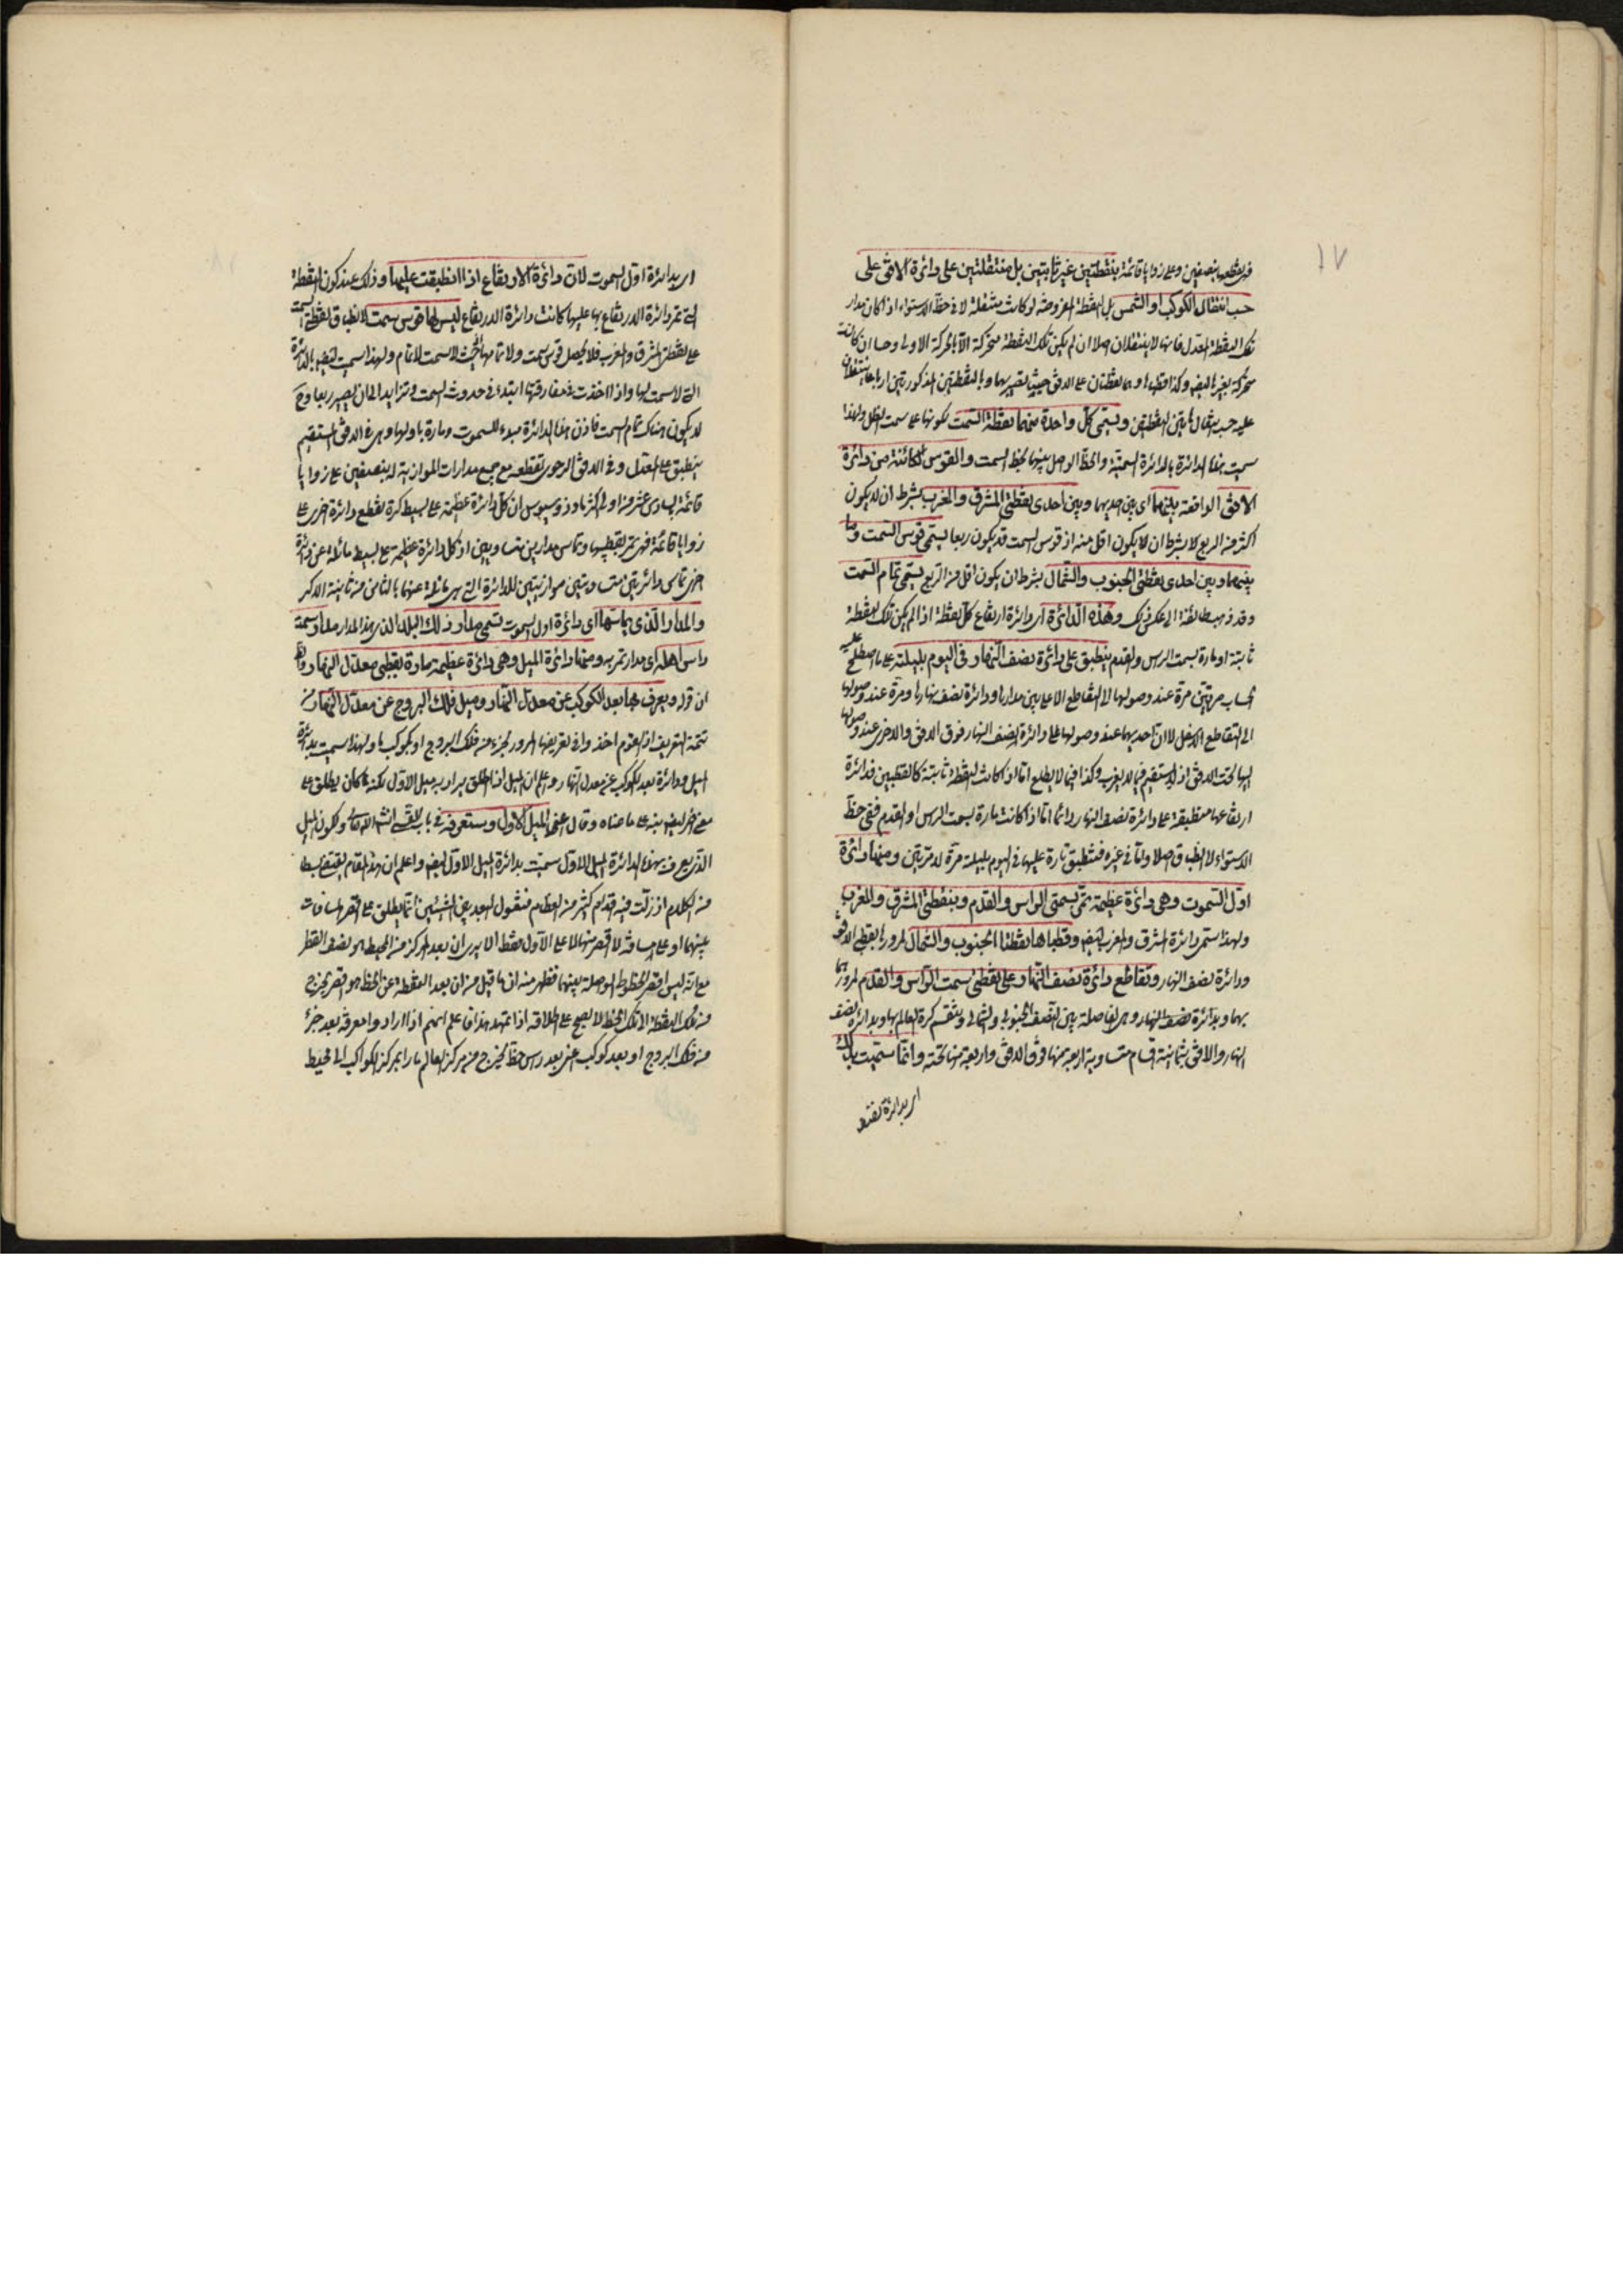 ١٧
فيقطعها بنصفين وعلى زوايا قائمة بنقطتين غير ثابتتين بل منتقلتين على دائرة الافق على
حسب انتقال الكوكب او الشمس بل النقطة المفروضة لو كانت منتقلة لا فى خط الاستواء اذا كان مدار
تلك النقطة المعدل فانهما لا ينتقلان اصلا ان لم يكن تلك النقطة متحركة الا بالحركة الاولى
متحركة بغيرها ايضا وكذا قطباها وهما نقطتان على الافق
كل واحدة منهما نقطة السمت لكونها على سمت الظل ولهذا
سميت هذه الدائرة بالدائرة السمتية والخط الواصل بينهما بخط السمت والقوس الكائنة من دائرة
الافق الواقعة بينهما اى بين احديهما وبين احدى نقطتى المشرق والمغرب بشرط ان لا يكون
اكثر من الربع لا بشرط ان لا يكون اقل منه اذ قوس السمت قد يكون ربعا يسمى قوس السمت وما
بينهما وبين احدى نقطتى الجنوب والشمال بشرط ان يكون اقل من الربع يسمى تمام السمت
وقد ذهب طائفة الى عكس ذلك وهذه الدائرة اى دائرة ارتفاع كل نقطة اذا لم يكن تلك النقطة
ثابتة او مارة بسمت الرأس والقدم ينطبق على دائرة نصف النهار فى اليوم بليلته على ما اصطلح عليه
الحساب مرتين مرة عند وصولها الى التقاطع الاعلى بين مدارها ودائرة نصف نهارها ومرة عند وصولها
الى التقاطع الاسفل لا ان احديهما عند وصولها على دائرة نصف النهار فوق الافق والاخرى عند وصولها
اليها تحت الافق اذ لا يستقيم فيما لا يغرب وكذا فيما لا يطلع اما اذا كانت النقطة ثابتة كالقطبين فدائرة
ارتفاعها منطبقة على دائرة نصف النهار دائما اما اذا كانت مارة بسمت الرأس او القدم ففى خط
الاستواء لا انطباق اصلا واما فى غيره فتنطبق تارة عليها فى اليوم بليلته مرة لا مرتين ومنها دائرة
اول السموت وهى دائرة عظيمة تمر بسمتى الرأس والقدم وبنقطتى المشرق والمغرب
ولهذا تسمى دائرة المشرق والمغرب ايضا وقطباها نقطتا الجنوب والشمال لمرورها بقطبى الافق
ودائرة نصف النهار وتقاطع دائرة نصف النهار على نقطتى سمت الرأس والقدم لمرورهما
بهما وبدائرة نصف النهار وهى الفاصلة بين النصف الجنوبى والشمالى وينقسم كرة العالم بها وبدائرة نصف
النهار والافق بثمانية اقسام متساوية اربعة منها فوق الافق واربعة منها تحته وانما سميت بذلك
اى بدائرة
اى بدائرة اول السموت لان دائرة الارتفاع اذا انطبقت عليها وذلك عند كون النقطة
التى تمر دائرة الارتفاع بها عليها كانت دائرة الارتفاع ليس لها قوس سمت لانطباق نقطتى السمت
على نقطتى المشرق والمغرب فلا يحصل قوس سمت ولا تمامها لا سمت لا تمام ولهذا سميت ايضا بالدائرة
التى لا سمت لها واذا اخذت فى مفارقتها ابتدأ فى حدوث السمت وتزايد الى ان يصير ربعا
لا يكون هناك تمام السمت فاذن هذه الدائرة مبدء للسموت ومارة باولها وهى فى الافق المستقيم
ينطبق على المعدل وفى الافق الرحوى تقطعه مع جميع مدارات الموازية له بنصفين على زوايا
قائمة ان كل دائرة عظيمة على بسيط كرة تقطع دائرة اخرى على
زوايا قائمة فهى تمر بقطبيها وتماس مدارين متساويين اذ كل دائرة عظيمة على بسيط مائلة عن دائرة
اخرى تماس دائرتين متساويتين موازيتين للدائرة التى هى مائلة عنها بالثامن من ثانية الاكر
والمدار الذى يماسها اى دائرة اول السموت تسمى مدار ذلك البلد الذى هذا المدار مدار سمت
رأس اهله اى مدار تمر به ومنها دائرة الميل وهى دائرة عظيمة مارة بقطبى معدل النهار
ان قوله ويعرف بها بعد الكوكب عن معدل النهار وميل فلك البروج عن معدل النهار من
تتمة التعريف اذ القوم اخذوا فى تعريفها المرور بجزء من فلك البروج او بكوكب ما ولهذا سميت بدائرة
الميل ودائرة بعد الكوكب عن معدل النهار واعلم ان الميل اذا اطلق يراد به ميل الاول لكنه لما كان يطلق على
معنى اخر ايضا وقال اعنى الميل الاول وستعرفه فى باب القسى انشاء الله تعالى ولكون الميل
الذى يعرف بهذه الدائرة الميل الاول سميت بدائرة الميل الاول ايضا واعلم ان هذا المقام يقتضى بسطا
من الكلام اذ زلت فيه اقدام كثير من العظام فنقول البعد بين الشيئين انما يطلق على اقصر المسافات
بينهما او على مسافة لا اقصر منها لا على الاول فقط الا يرى ان بعد المركز من المحيط هو نصف القطر
مع انه ليس اقصر الخطوط الواصلة بينهما فظهر منه ان ما قيل من ان بعد النقطة عن الخط هو اقصر يخرج
من تلك النقطة الى تلك الخط لا يصح على اطلاقه اذا تمهد هذا فاعلم انهم اذا ارادوا معرفة بعد جزء
من فلك البروج او بعد كوكب عن يعد رأس خط يخرج من مركز العالم مارا بمركز الكواكب الى محيط